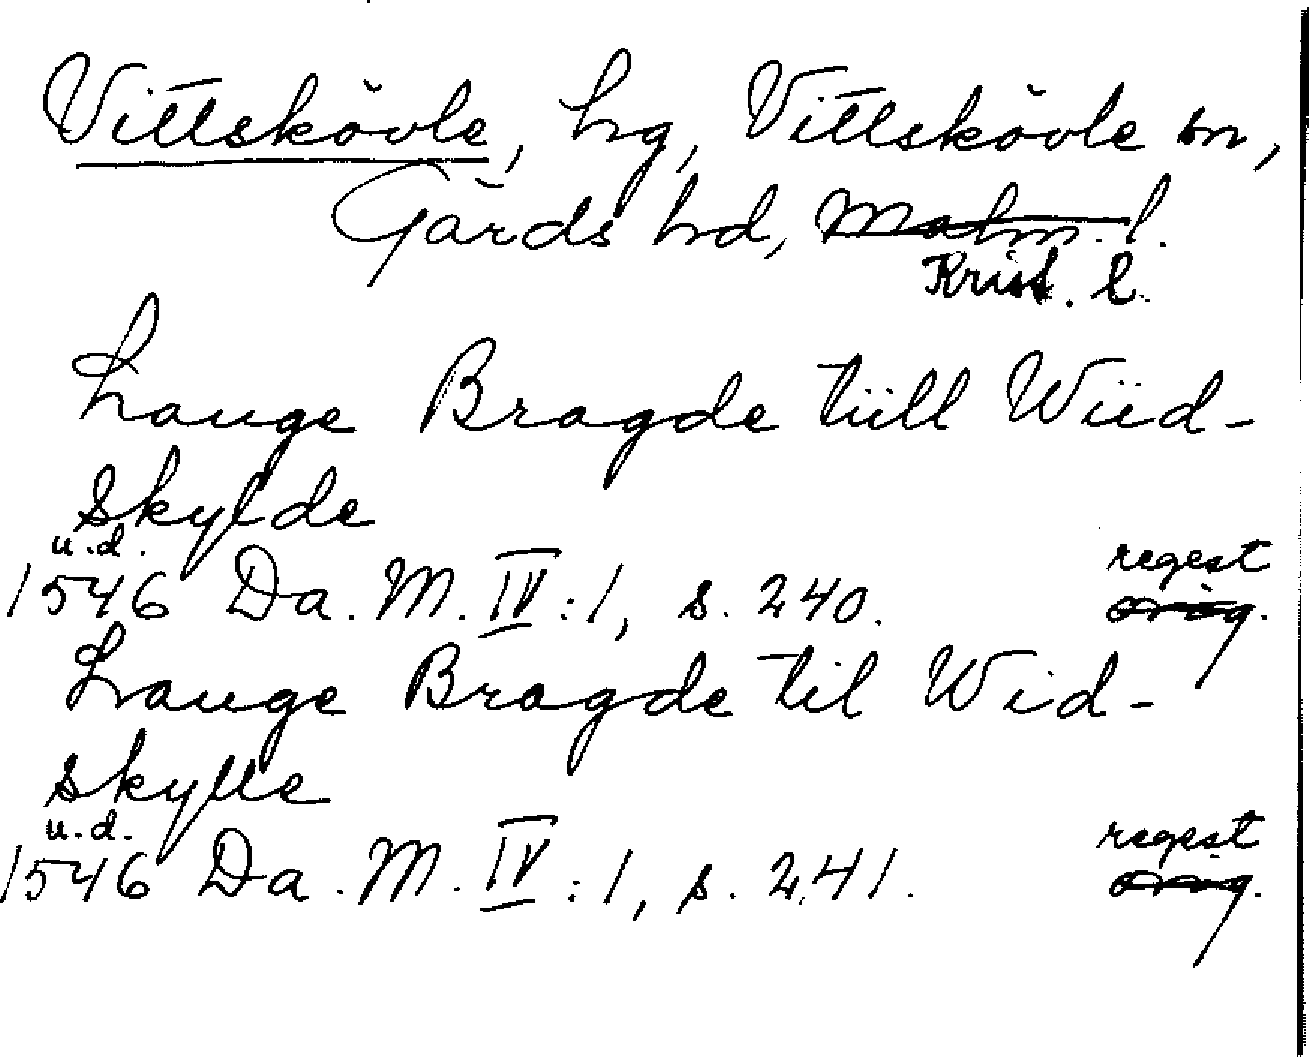 Vittskövle, hg, Vittskövle sn,
Gärds hd, Malm. l.
Krist. l.
Lauge Bragde tiill Wiid-
skylde
u.d.
1546 Da. M. IV:1, s. 240.
regest
orig.
Lauge Bragde til Wid-
skylle
u.d.
1546 Da. M. IV:1, s. 241.
regest
orig.